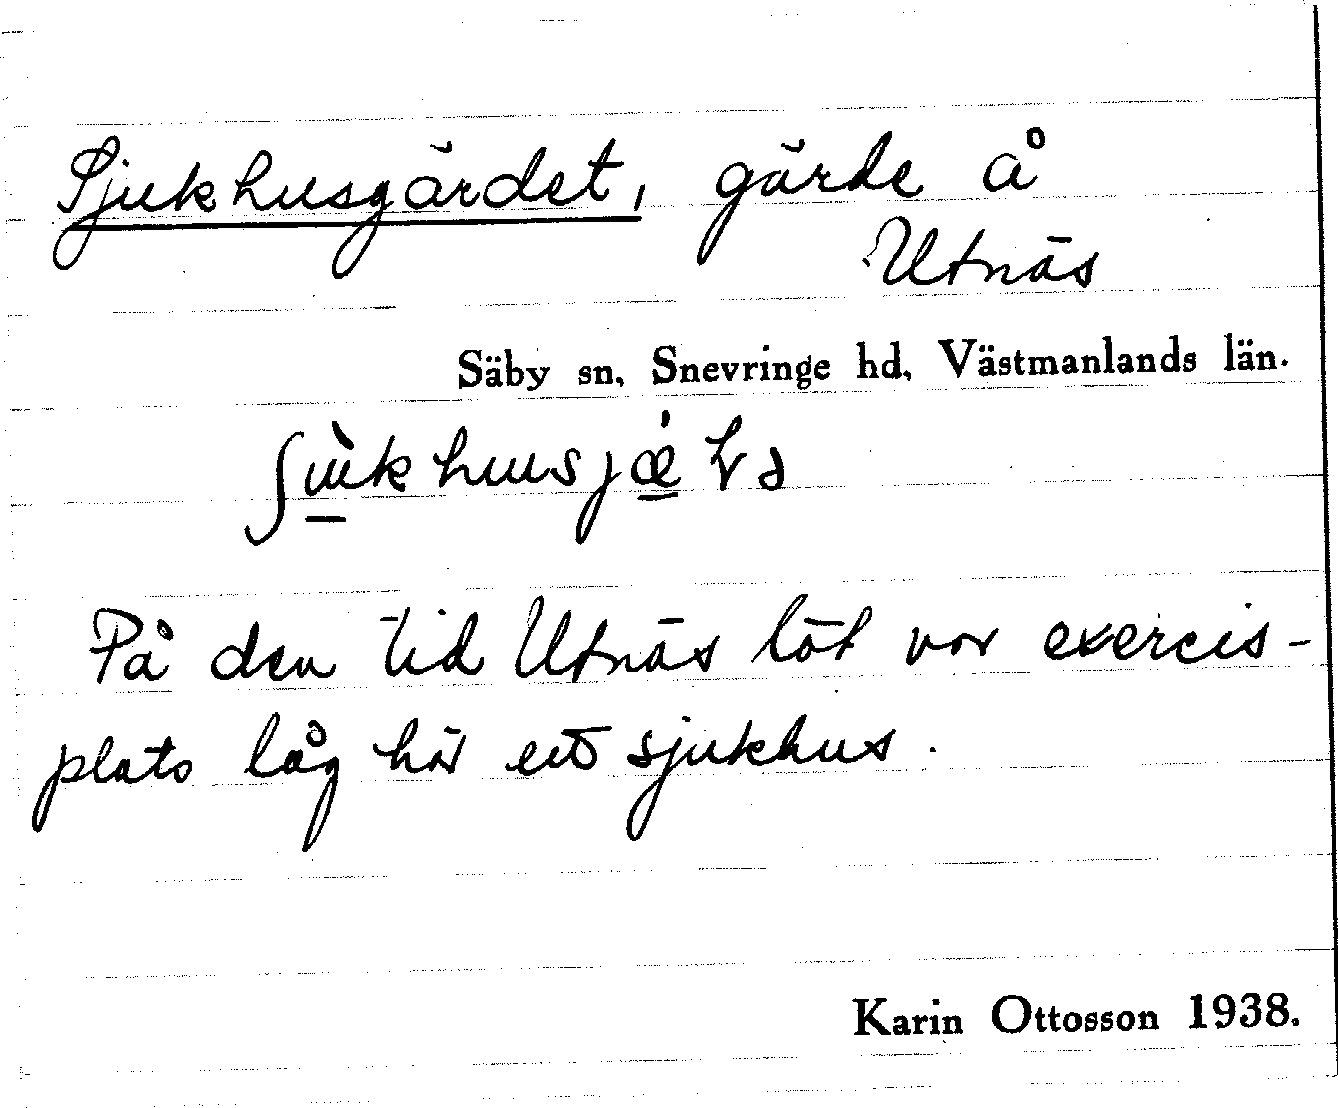 Sjukhusgärdet, gärde å
Utnäs
Säby sn, Snevringe hd, Västmanlands län.
På den tid Utnäs löt var exercis-
plats låg här ett sjukhus.
Karin Ottosson 1938.